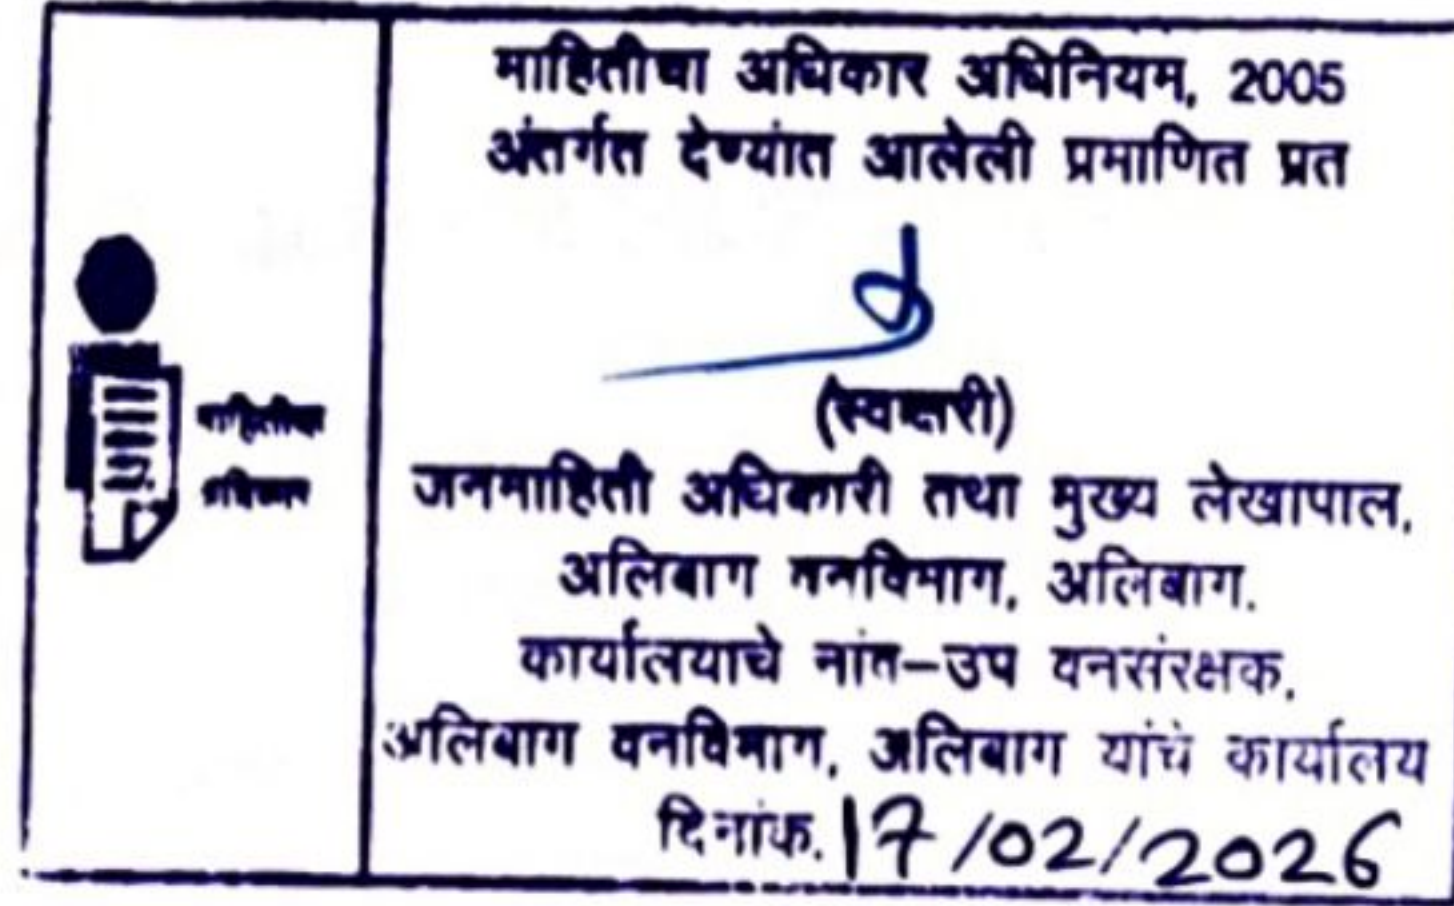 माहितीचा अधिकार अधिनियम, 2005
अंतर्गत देण्यांत आलेली प्रमाणित प्रत
(स्वाक्षरी)
माहितीचा
अधिकार
जनमाहिती अधिकारी तथा मुख्य लेखापाल,
अलिबाग वनविभाग, अलिबाग.
कार्यालयाचे नांव-उप वनसंरक्षक,
अलिबाग वनविभाग, अलिबाग यांचे कार्यालय
दिनांक. 17/02/2026